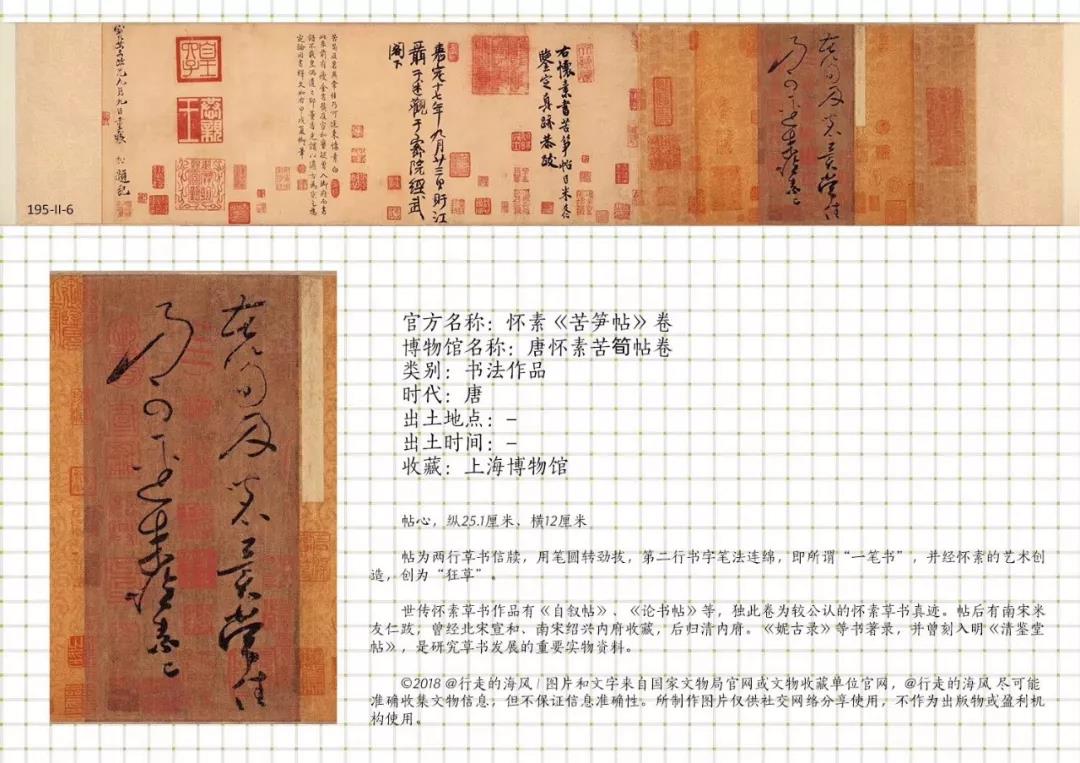 右懷素書苦筍帖臣米友仁
鑒定真跡恭跋
嘉定十七年九月廿三日盱江
聶子述觀于密院經武
閣下
195-II-6
苦筍及茗異常佳
乃可逕來懷素上
官方名称：怀素《苦笋帖》卷
博物馆名称：唐怀素苦筍帖卷
类别：书法作品
时代：唐
出土地点：-
出土时间：-
收藏：上海博物馆
帖心，纵25.1厘米、横12厘米
帖为两行草书信牍，用笔圆转劲拔，第二行书字笔法连绵，即所谓“一笔书”，并经怀素的艺术创
造，创为“狂草”。
世传怀素草书作品有《自叙帖》、《论书帖》等，独此卷为较公认的怀素草书真迹。帖后有南宋米
友仁跋，曾经北宋宣和、南宋绍兴内府收藏，后归清内府。《妮古录》等书著录，并曾刻入明《清鉴堂
帖》，是研究草书发展的重要实物资料。
©2018 @行走的海风 | 图片和文字来自国家文物局官网或文物收藏单位官网，@行走的海风 尽可能
准确收集文物信息，但不保证信息准确性。所制作图片仅供社交网络分享使用，不作为出版物或盈利机
构使用。